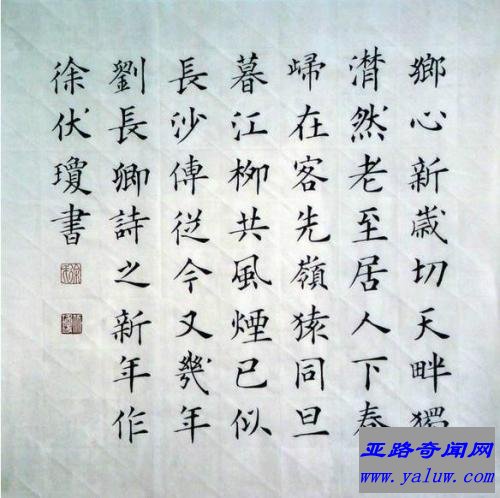 鄉心新歲切天畔獨
潸然老至居人下春
歸在客先嶺猿同旦
暮江柳共風煙已似
長沙傅從今又幾年
劉長卿詩之新年作
徐伏瓊書
亚路奇闻网
www.yaluw.com